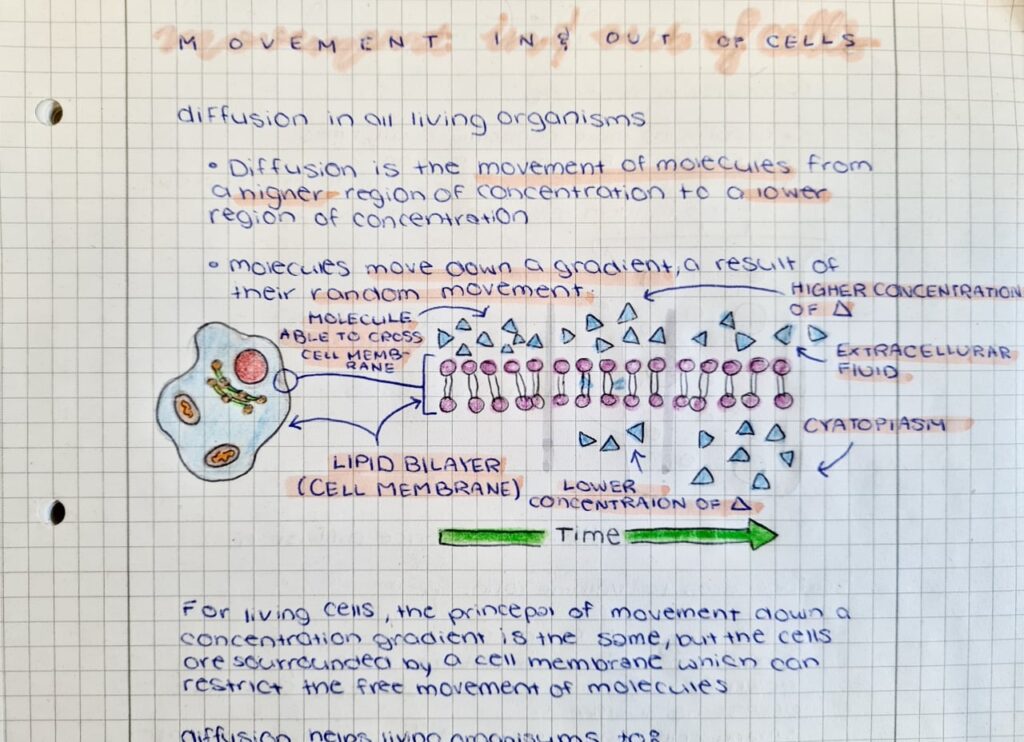 MOVEMENT IN & OUT OF CELLS
diffusion in all living organisms
• Diffusion is the movement of molecules from
a higher region of concentration to a lower
region of concentration
• molecules move down a gradient, a result of
their random movement.
MOLECULE
ABLE TO CROSS
CELL MEMB-
RANE
HIGHER CONCENTRATION
OF △
EXTRACELLURAR
FLUID
CYATOPLASM
LIPID BILAYER
(CELL MEMBRANE)
LOWER
CONCENTRAION OF △
Time
For living cells, the princepal of movement down a
concentration gradient is the same, but the cells
are sourrounded by a cell membrane which can
restrict the free movement of molecules
diffusion helps living